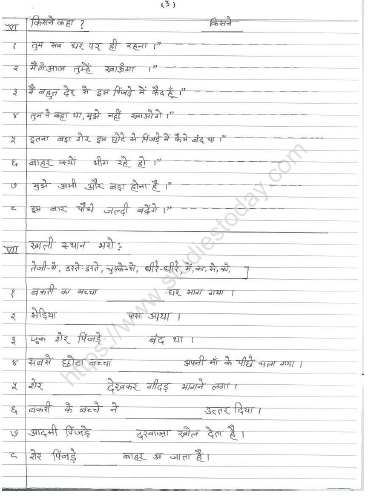 (3)
VI किसने कहा ? किसने
१ तुम सब घर पर ही रहना ।"
२ मैं तो आज तुम्हें खाऊँगा ।"
३ मैं बहुत देर से इस पिंजड़े में कैद हूँ ।"
४ तुमने कहा था, मुझे नहीं खाओगे ।"
५ इतना बड़ा शेर इस छोटे से पिंजड़े में कैसे बंद था ।"
६ बाहर क्यों भीग रहे हो ।"
७ मुझे अभी और बड़ा होना है ।"
८ इस बार पौधे जल्दी बढ़ेंगे ।"
VII खाली स्थान भरो :
तेजी-से, डरते-डरते, चुपके-से, धीरे-धीरे, में, का, से, को, ]
१ बकरी का बच्चा ______ घर भाग गया ।
२ भेड़िया ______ पास आया ।
३ एक शेर पिंजड़े ______ बंद था ।
४ सबसे छोटा बच्चा ______ अपनी माँ के पीछे चला गया ।
५ शेर ______ देखकर गीदड़ भागने लगा ।
६ बकरी के बच्चे ने ______ उत्तर दिया ।
७ आदमी पिंजड़े ______ दरवाजा खोल देता है ।
८ शेर पिंजड़े ______ बाहर आ जाता है ।
https://www.studiestoday.com